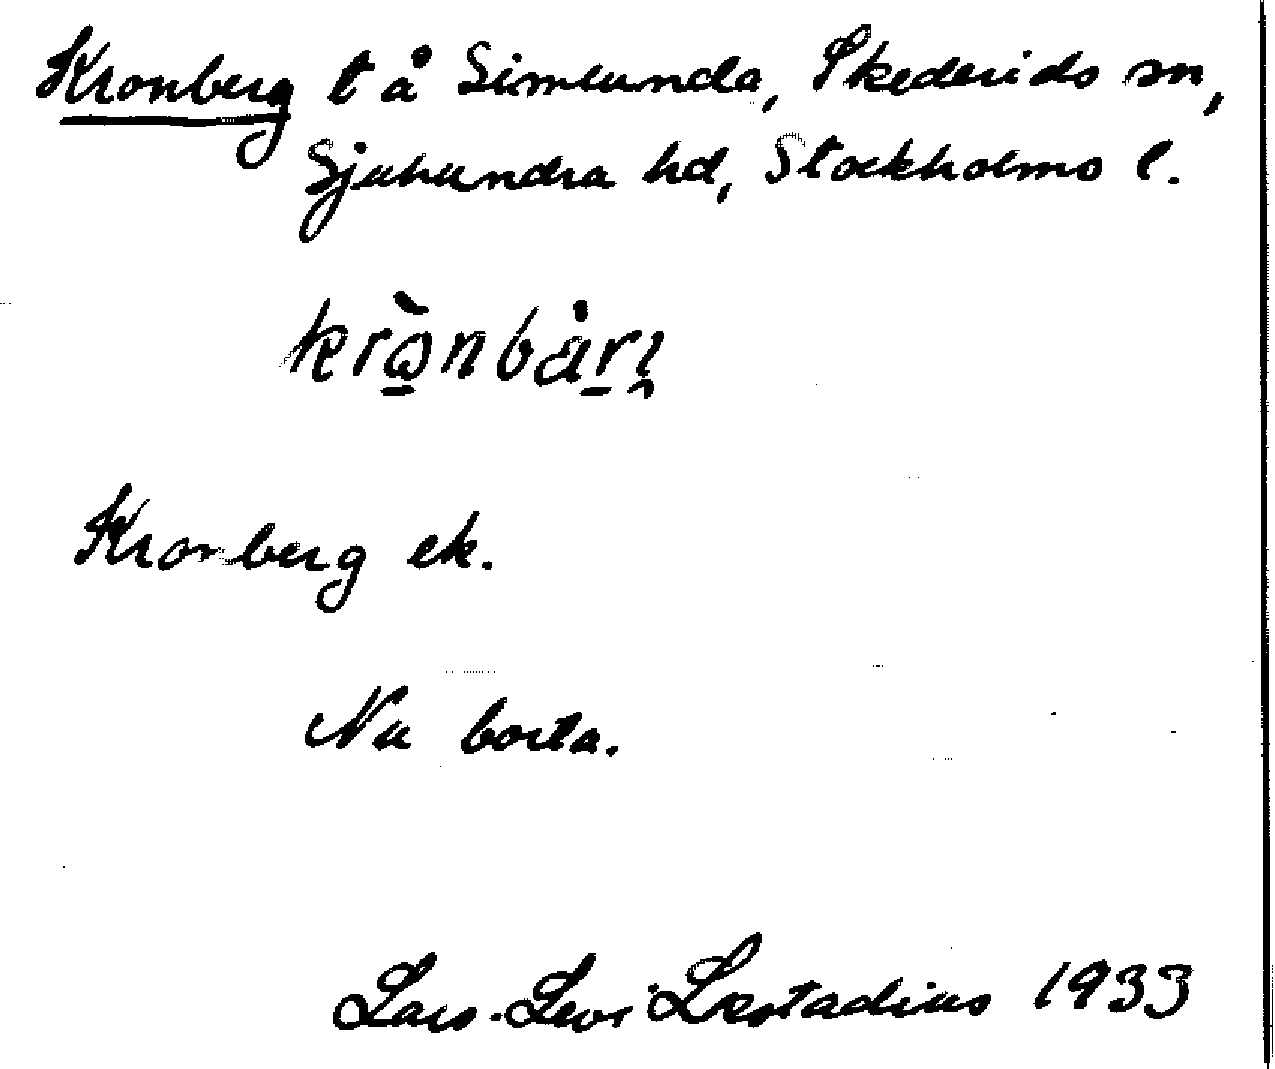 Kronberg t å Simlunda, Skederids sn,
Sjuhundra hd, Stockholms l.
krò̱nbåṟı̨
Kronberg ek.
Nu borta.
Lars-Levi Læstadius 1933